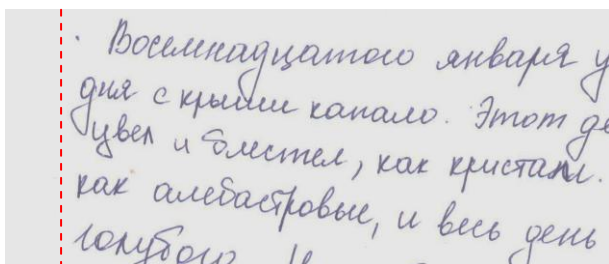 Восемнадцатого января у
дня с крыши капало. Этот де
цвел и блестел, как кристалл.
как алебастровые, и весь день
голубого